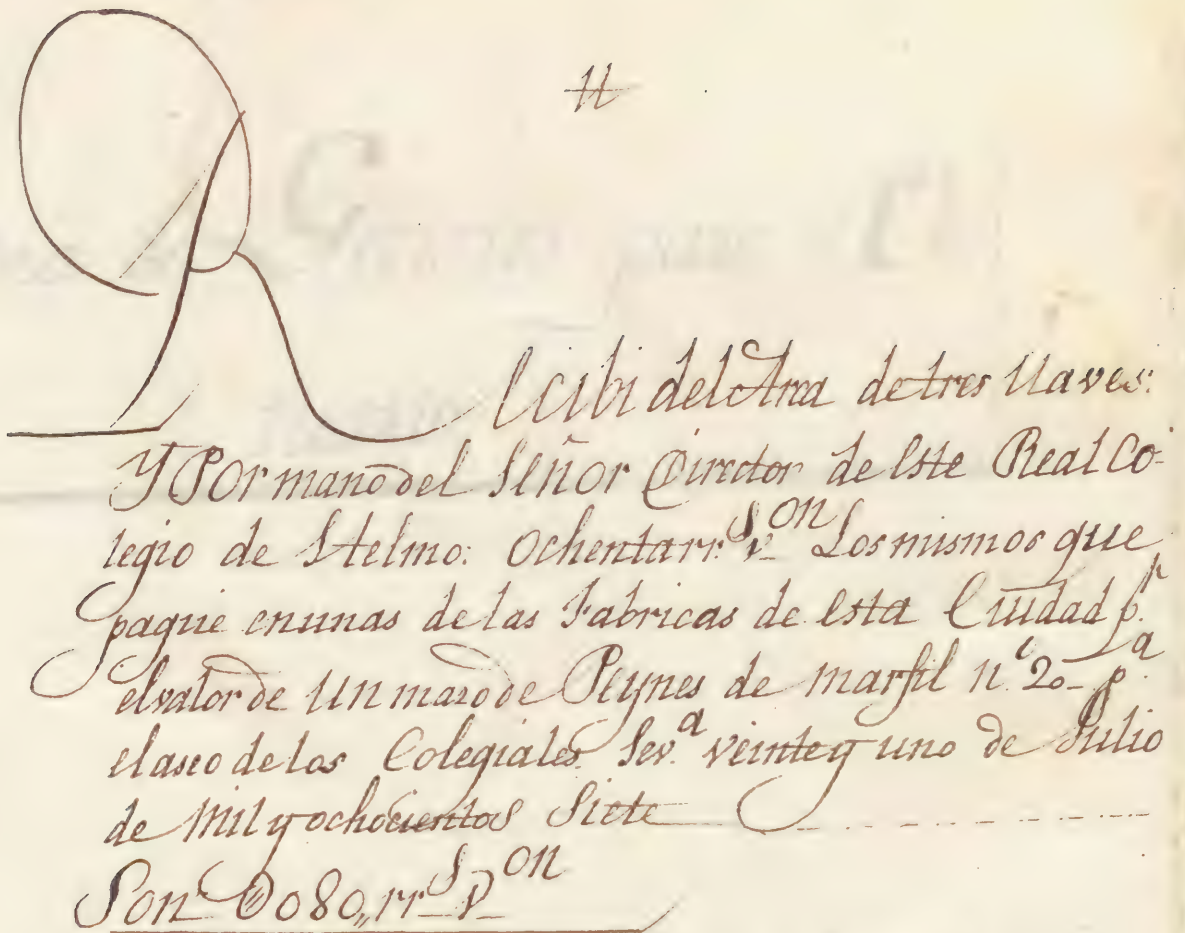 11
Recibi del Arca de tres llaves:
Y Por mano del Señor Director de este Real Co=
legio de Stelmo: Ochenta rr.s v.on Los mismos que
paque en unas de las Fabricas de esta Ciudad p.r
el valor de Un mazo de Peynes de marfil n.o 20 p.a
el aseo de los Colegiales. Sev.a veinte y uno de Julio
de Mil y ochocientos Siete
Son 080,, rr.s v.on